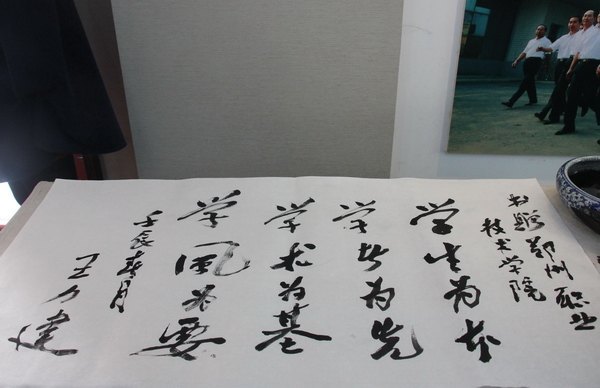 书赠郑州职业
技术学院
学生为本
学者为先
学术为基
学风为要
壬辰春月
王力建